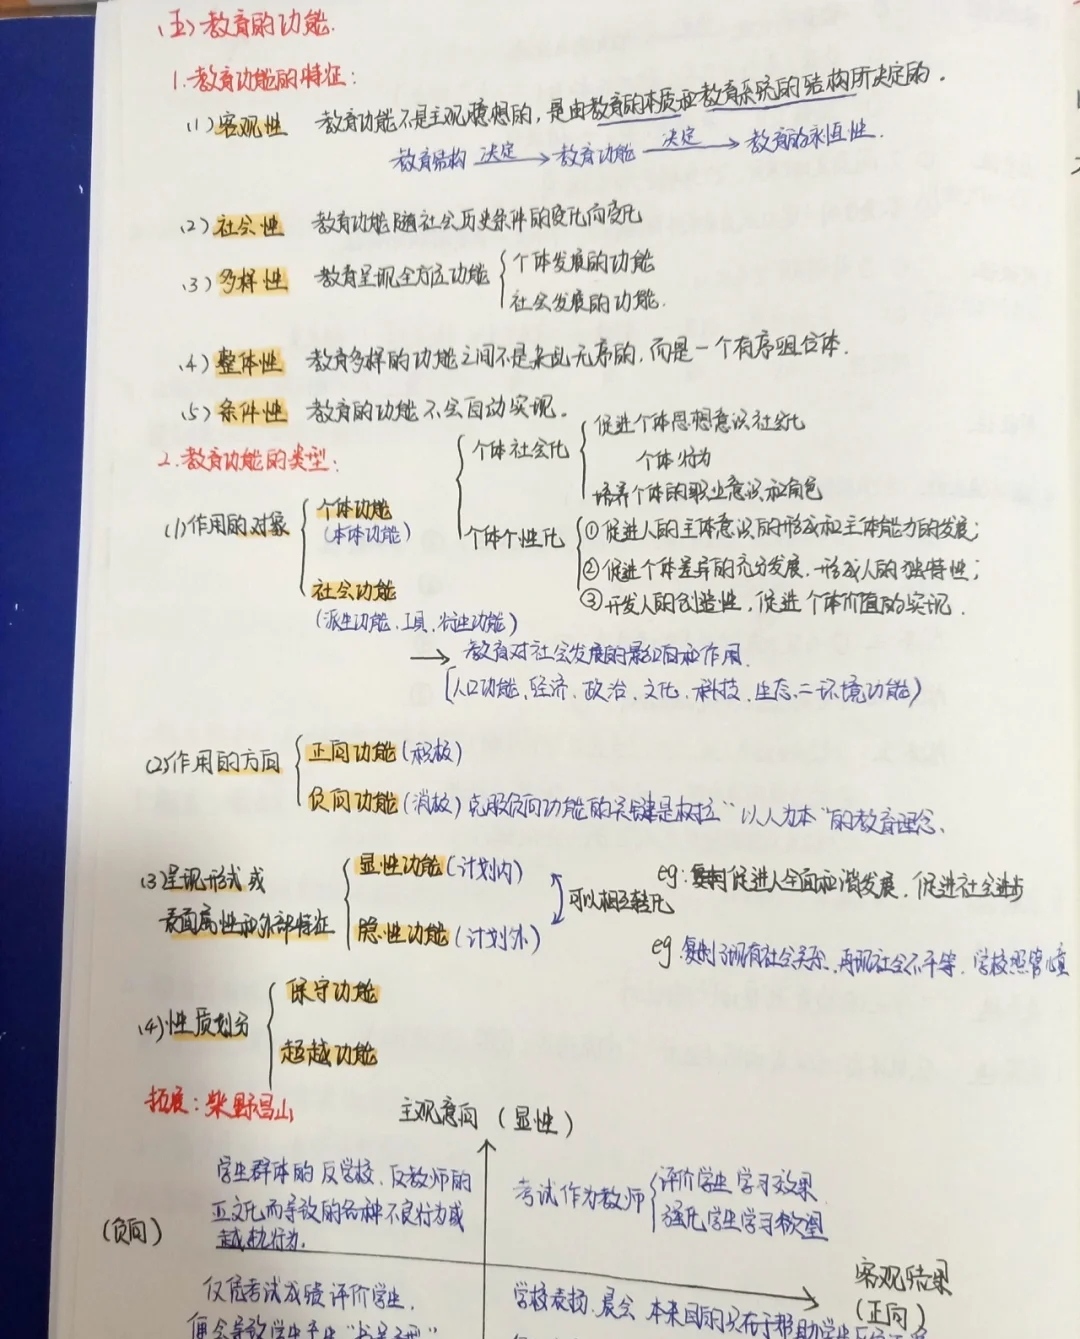 (五)教育的功能.
1.教育功能的特征:
(1)客观性 教育功能不是主观臆想的,是由教育的本质和教育系统的结构所决定的.
教育结构 决定→ 教育功能 决定→ 教育的永恒性.
(2)社会性 教育功能随社会历史条件的变化而变化
(3)多样性 教育呈现全方位功能 { 个体发展的功能
社会发展的功能.
(4)整体性 教育多样的功能之间不是杂乱无序的,而是一个有序组合体.
(5)条件性 教育的功能不会自动实现.
2.教育功能的类型:
(1)作用的对象
个体功能
(本体功能)
个体社会化 { 促进个体思想意识社会化
个体行为
培养个体的职业意识和角色
个体个性化 { ①促进人的主体意识的形成和主体能力的发展;
②促进个体差异的充分发展,形成人的独特性;
③开发人的创造性,促进个体价值的实现.
社会功能
(派生功能、工具、衍生功能)
→ 教育对社会发展的影响和作用.
(人口功能、经济、政治、文化、科技、生态、环境功能)
(2)作用的方向 { 正向功能(积极)
负向功能(消极) 克服负向功能的关键是树立“以人为本”的教育理念.
(3)呈现形式或
表面属性和外部特征
显性功能(计划内) eg: 促进人全面和谐发展、促进社会进步
可以相互转化
隐性功能(计划外) eg.复制了现有社会关系、再现社会不平等、学校照管儿童
(4)性质划分 { 保守功能
超越功能
拓展:柴野昌山
主观意向(显性)
学生群体的反学校、反教师的
亚文化而导致的各种不良行为或
越轨行为.
考试作为教师 { 评价学生学习效果
强化学生学习欲望
(负向)
客观结果
(正向)
仅凭考试成绩评价学生,
便会导致学生产生
学校表扬、晨会 本来目的只在于帮助学生